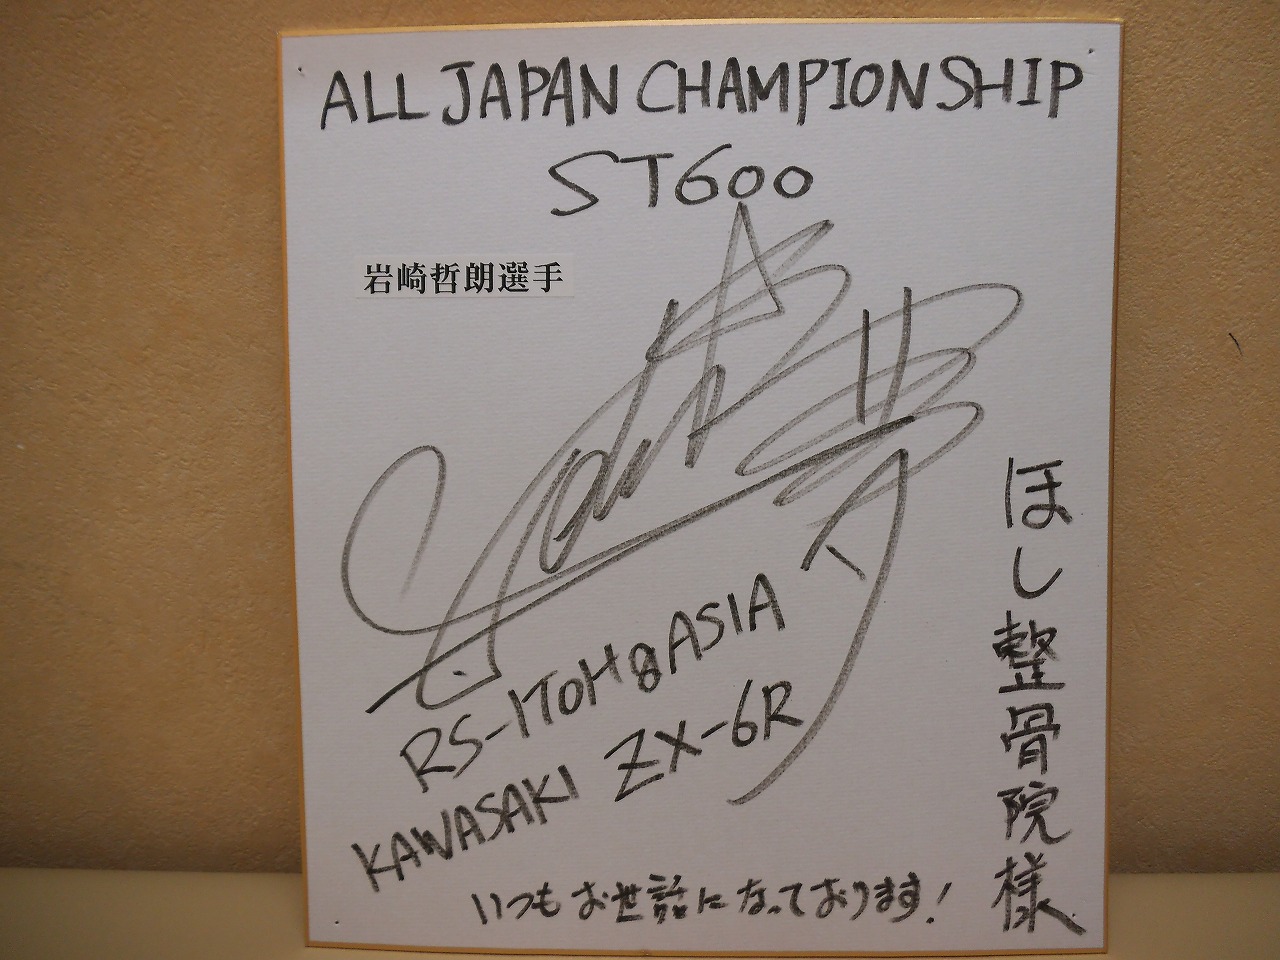 ALL JAPAN CHAMPIONSHIP
ST600
岩崎哲朗選手
夢
RS-ITOH&ASIA
KAWASAKI ZX-6R
ほし整骨院様
いつもお世話になっております!